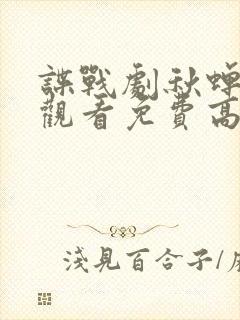 諜戰劇秋蟬
觀看免費高
淺見百合子/